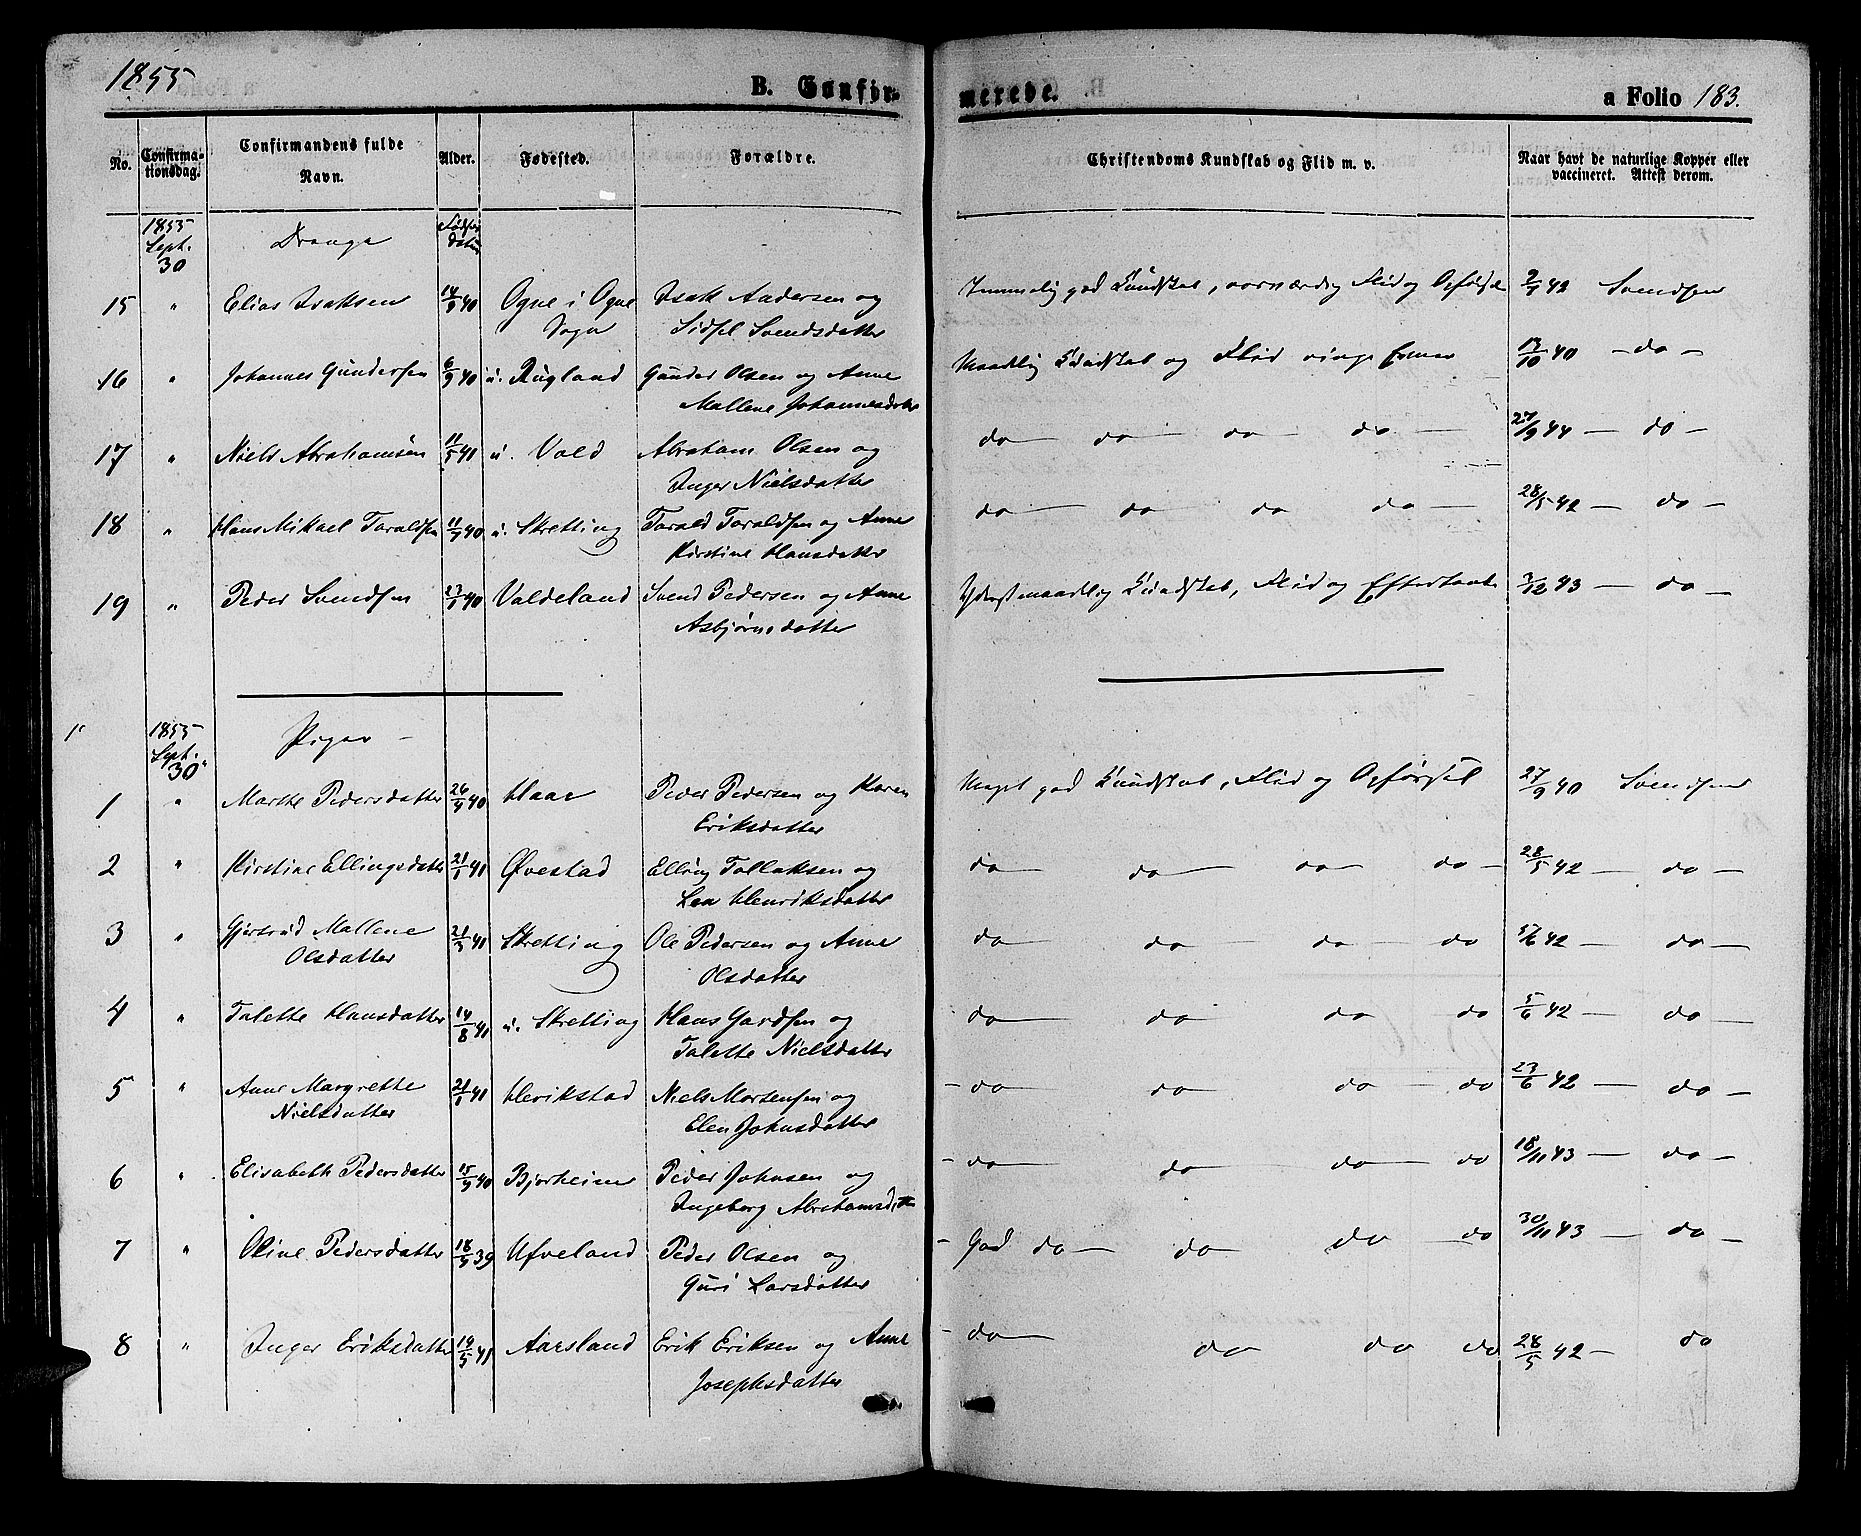 1855 B. Confir- merede. a Folio 183.
No. Confirma- tionsdag. Confirmandens fulde Navn. Alder. Fødested. Forældre. Christendoms Kundskab og Flid m. v. Naar havt de naturlige Kopper eller vaccineret. Attest derom.
1855 Sept. 30 Drenge Fødsels datum
15 " Elias Isaksen 40 Ogne i Ogne Isak Andersen og Temmelig god Kundskab, Flid og Opførsel 42 Svendsen
Sogn Sidsel Svendsdatter
16 " Johannes Gundersen 6/9 40 u. Rugland Gunder Olsen og Anne Maadelig Kundskab og Flid 13/10 40 – do –
Mallene Johannesdatter
17 " Niels Abrahamsen 11/5 41 u. Vold Abraham Olsen og do do do do 27/9 44 – do –
Inger Nielsdatter
18 " Hans Mikael Taraldsen 40 u. Skretting Tarald Taraldsen og Anne do do do do 28/5 42 – do –
Kirstine Hansdatter
19 " Peder Svendsen 40 Valdeland Svend Pedersen og Anne Yderst maadelig Kundskab, Flid og Eftertanke 3/12 43 – do –
Asbjørnsdatter
1855 Sept. 30 Piger –
1 " Marthe Pedersdatter 26/9 40 Haar Peder Pedersen og Karen Meget god Kundskab, Flid og Opførsel 27/9 40 Svendsen
Eriksdatter
2 " Kirstine Ellingsdatter 21/1 41 Øvestad Elling Tollaksen og do do do do – 28/5 42 – do –
Lea Henriksdatter
3 " Gjertrud Mallene 41 Skretting Ole Pedersen og Anne do do do do 42 – do –
Olsdatter Olsdatter
4 " Talette Hansdatter 14/8 41 u. Skretting Hans Gardsen og do do do do 5/6 42 – do –
Talette Nielsdatter
5 " Anne Margrethe 21/1 41 Herikstad Niels Mortensen og – do do do do 23/6 42 – do –
Nielsdatter Elen Johnsdatter
6 " Elisabeth Pedersdatter 15/9 40 Bjorheim Peder Johnsen og – do do do do 18/11 43 – do –
Ingeborg Abrahamsd.
7 " Oline Pedersdatter 39 Ufveland Peder Olsen og – God do do do do 30/11 43 – do –
Guri Larsdatter
8 " Inger Eriksdatter 41 Aarsland Erik Eriksen og Anne – do do do do 28/5 42 – do
Josephsdatter